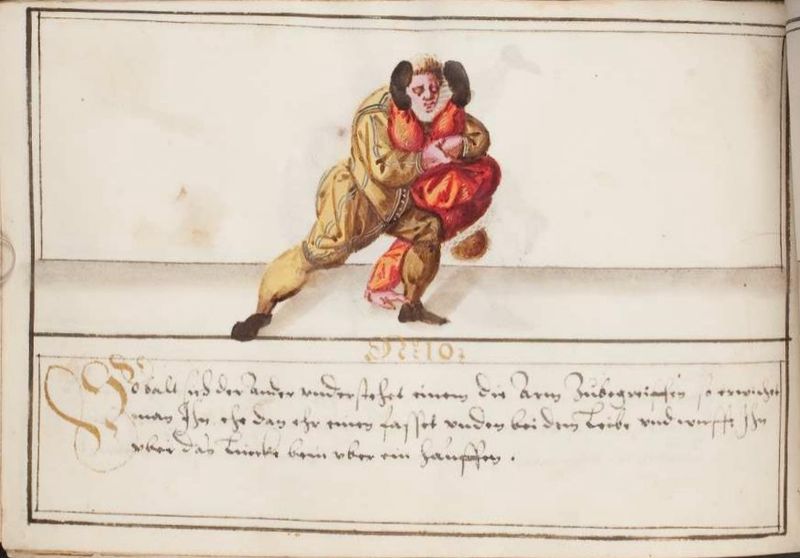 No: 10:
So balt sich der Ander understehet einem die Arm Zubegreiffen so erwischet
man Ihn, ehe dan ehr einen fasset unden bei dem Leibe und wirfft Ihn
uber das Lincke bein uber ein hauffen.